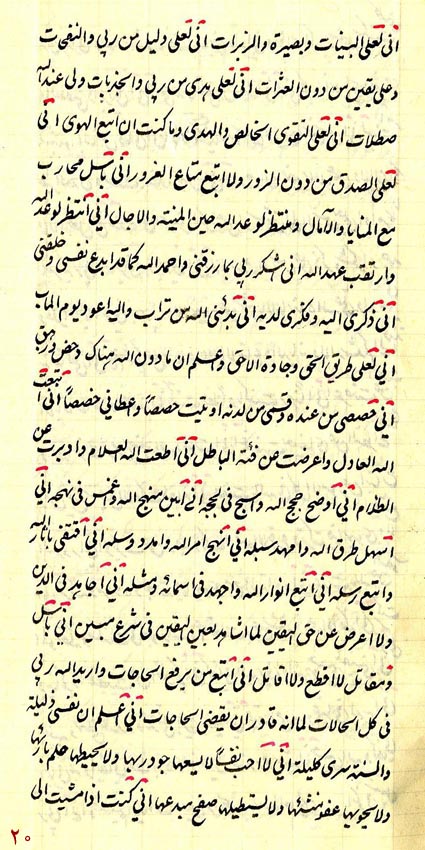 انی لعلی البینات و بصیرة والزبرات انی لعلی دلیل من ربی والنفحات
وعلی یقین من دون العثرات انی لعلی هدی من ربی والجذبات ولی عند الله
صلات انی لعلی التقوی الخالص والهدی وما کنت ان اتبع الهوی انی
لعلی الصدق من دون الزور ولا اتبع متاع الغرور انی باسل محارب
مع المنایا والآمال ومنتظر لوعد الله حین المنیة والاجال انی انتظر لوعد الله
وارتقب عهد الله انی اشکر ربی بما رزقنی واحمد الله کما قد ابدع نفسی وخلقنی
انی ذکری الیه وفکری لدیه انی بدئنی الله من تراب والیه اعود یوم المآب
انی لعلی طریق الحق وجادة الاحق واعلم ان ما دون الله هناک دحض وزهق
انی خصصی من عنده وقسمی من لدنه اوتیت حصصاً واعطانی خصصاً انی اتبعت
الله العادل واعرضت عن فئة الباطل انی اطعت الله العلام وادبرت عن
الظلام انی اوضح حجج الله واسبح فی لججه انی ابین منهج الله واغمس فی نهجه انی
اسهل طرق الله وامهد سبله انی انهج امر الله وامدد وسله انی اقتفی باثار الله
واتبع رسله انی اتبع انوار الله واجهد فی اسمائه ومثله انی اجاهد فی الدین
ولا اعرض عن حق الیقین لما اشاهد بعین الیقین فی شرع مبین انی باسل
ومقاتل لا اقطع ولا اقاتل انی اتبع من یرفع الحاجات وارید الله ربی
فی کل الحالات لما انه قادر ان یقضی الحاجات انی اعلم ان نفسی ذلیلة
والسنة سری کلیلة انی لا احب نفساً لا یسعها جود ربها ولا یحیطها حلم بارئها
ولا یحویها عفو منشئها ولا یستطیلها صفح مبدعها انی کنت اذا مشیت الی
٢٠